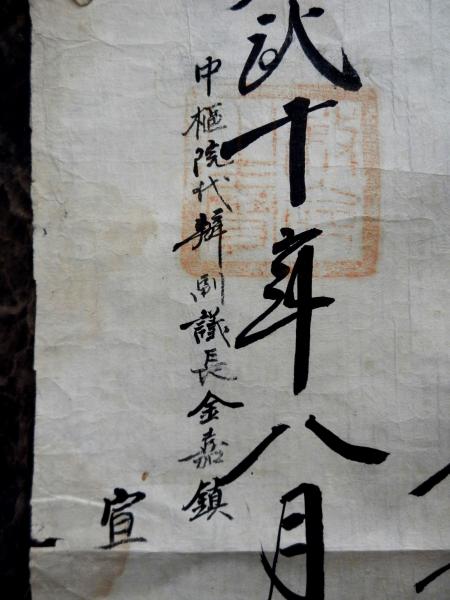 武十年八月
中樞院代辦副議長金嘉鎮
宣